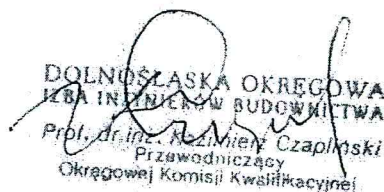 DOLNOŚLĄSKA OKRĘGOWA
IZBA INŻYNIERÓW BUDOWNICTWA
Prof. dr inż. Kazimierz Czapliński
Przewodniczący
Okręgowej Komisji Kwalifikacyjnej